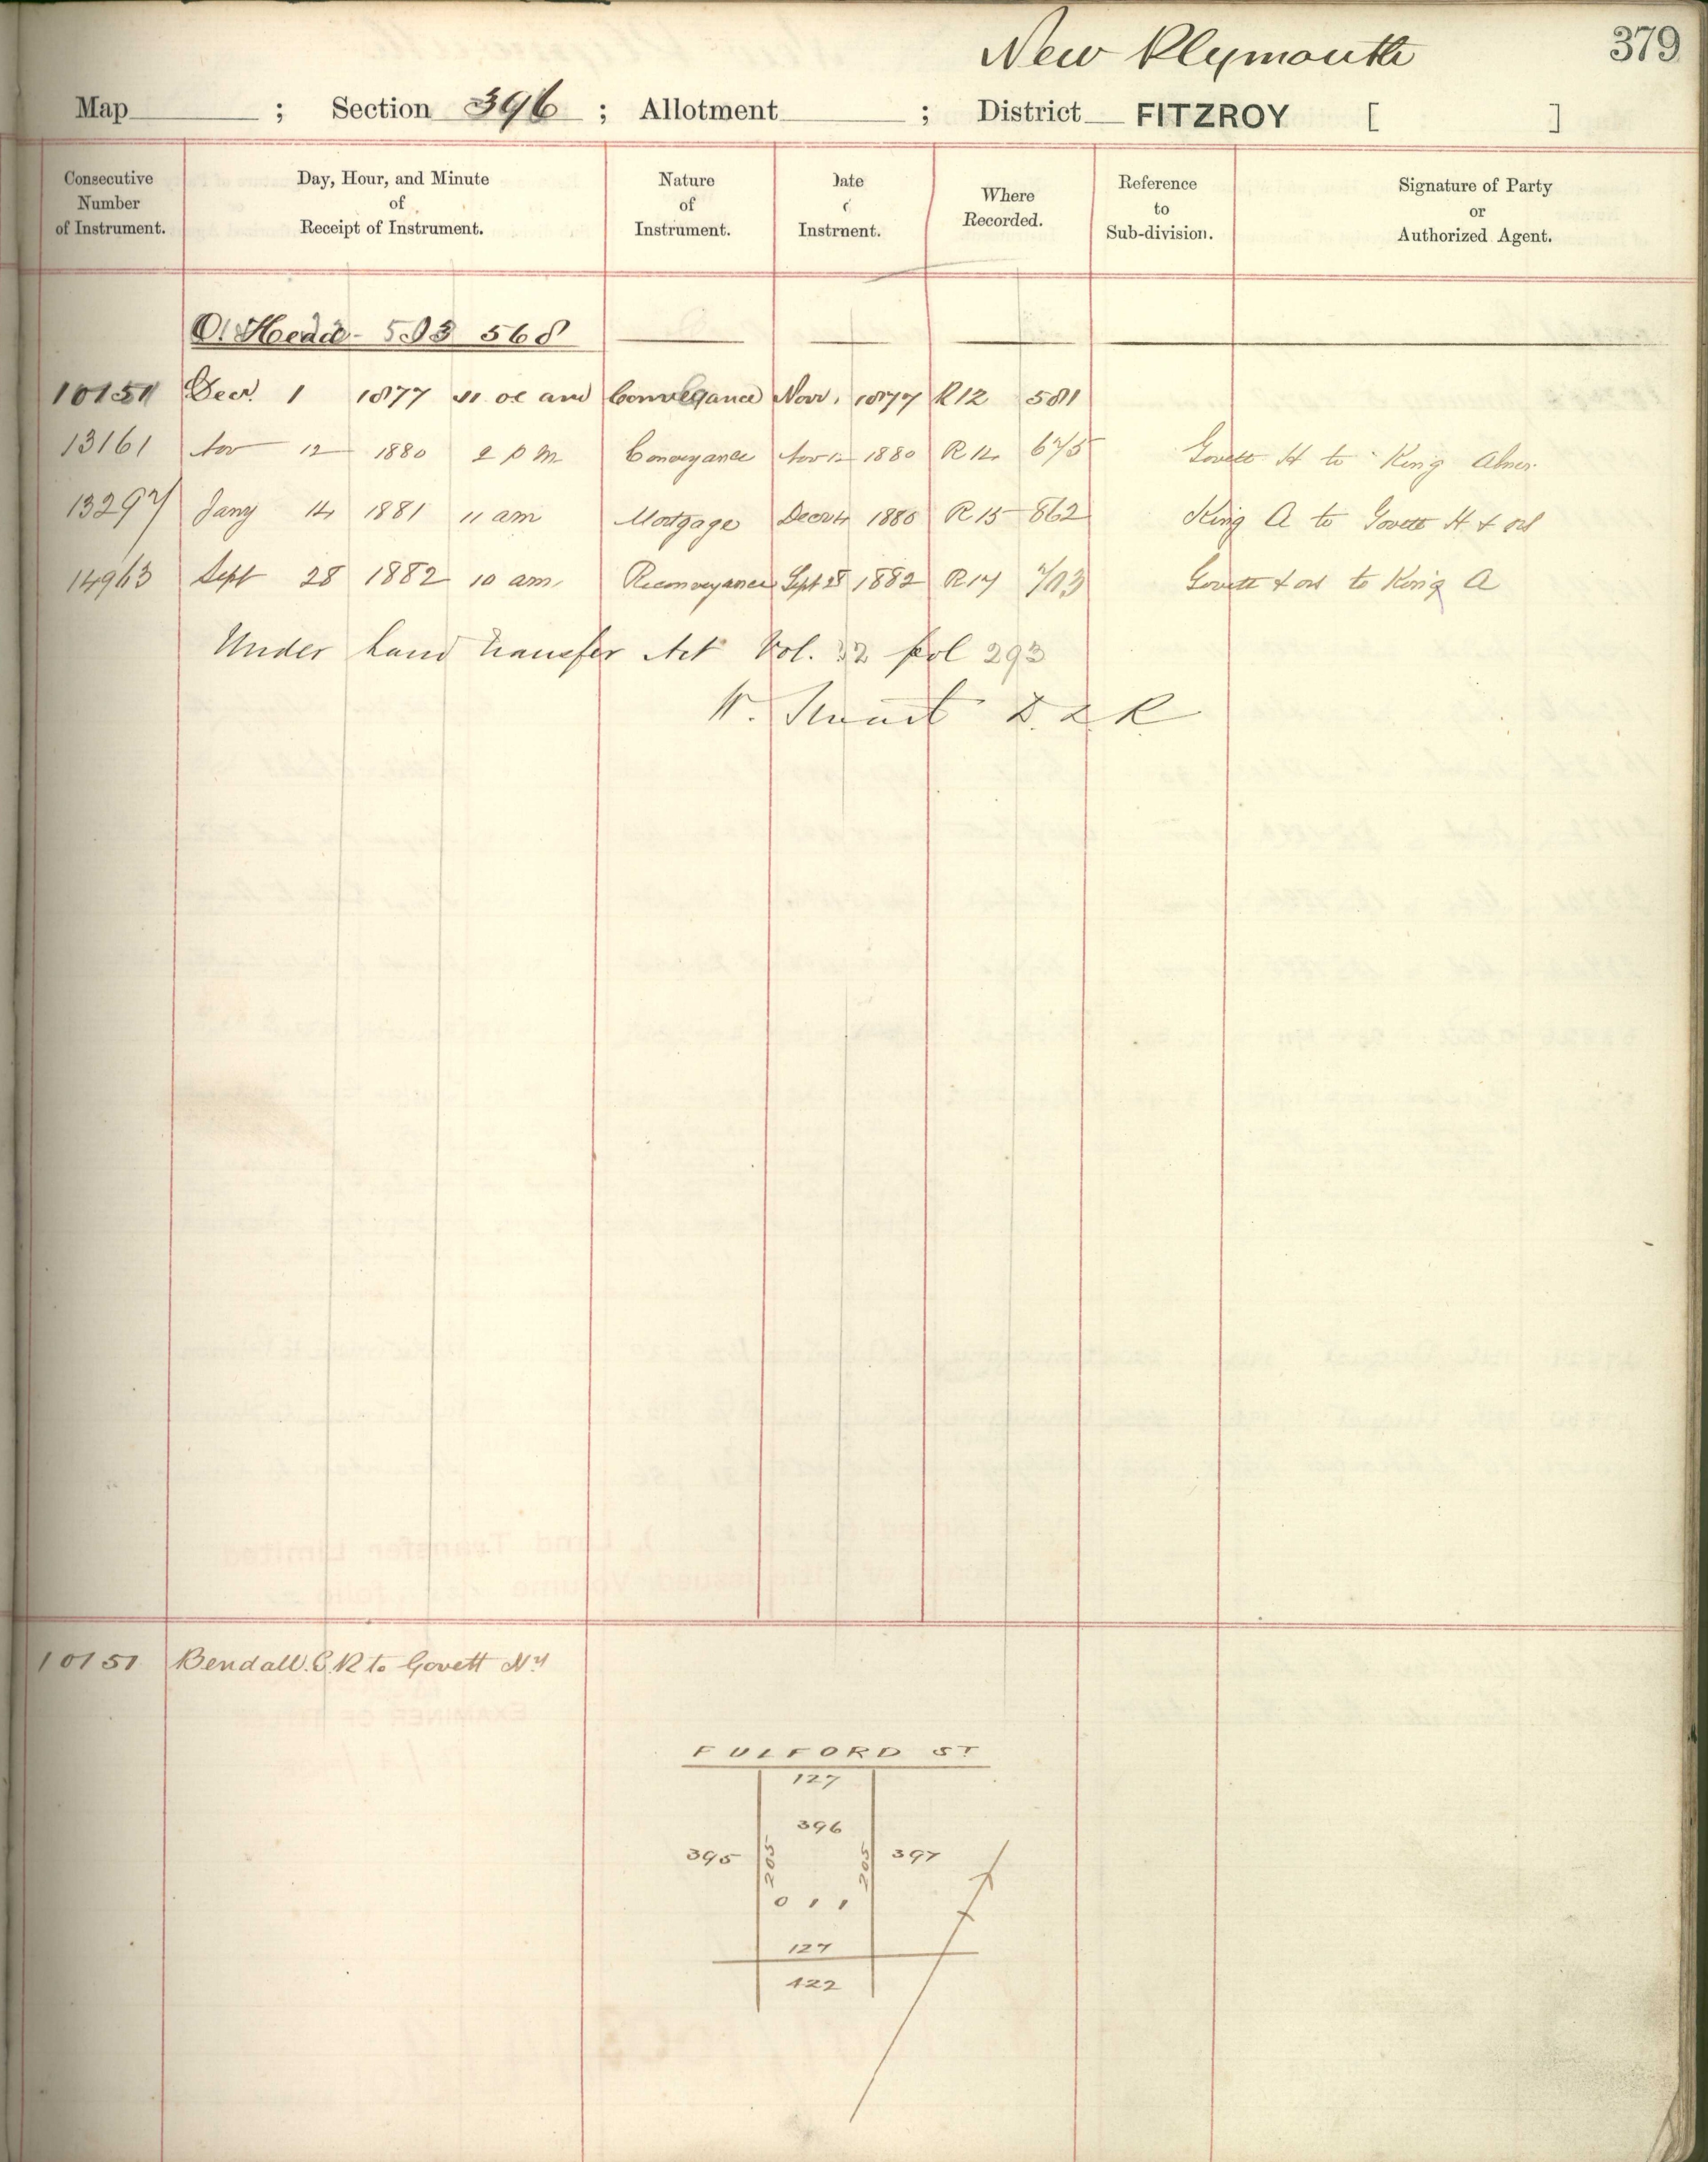 New Plymouth
379
Map ; Section 396 ; Allotment ; District FITZROY [ ]
Consecutive Number of Instrument.
Day, Hour, and Minute of Receipt of Instrument.
Nature of Instrument.
Date Instrument.
Where Recorded.
Reference to Sub-division.
Signature of Party or Authorized Agent.
568
10151 Decr. 1 1877 Conveyance Novr. 1877 R12 581
13161 Nov 12 1880 2 P M Conveyance Nov 12 1880 R12 675 Govett H to King Abner
13297 Jany 14 1881 11 am Mortgage Decr 14 1880 R15 862 King A to Govett H & ors
14963 Sept 28 1882 10 am Reconveyance Sept 28 1882 R17 703 Govett & ors to King A
Under Land Transfer Act Vol. fol 293
W. Stuart D L R
10151 Bendall. C.R to Govett Hy
FULFORD ST
127
396
395 205 205 397
0 1 1
127
422